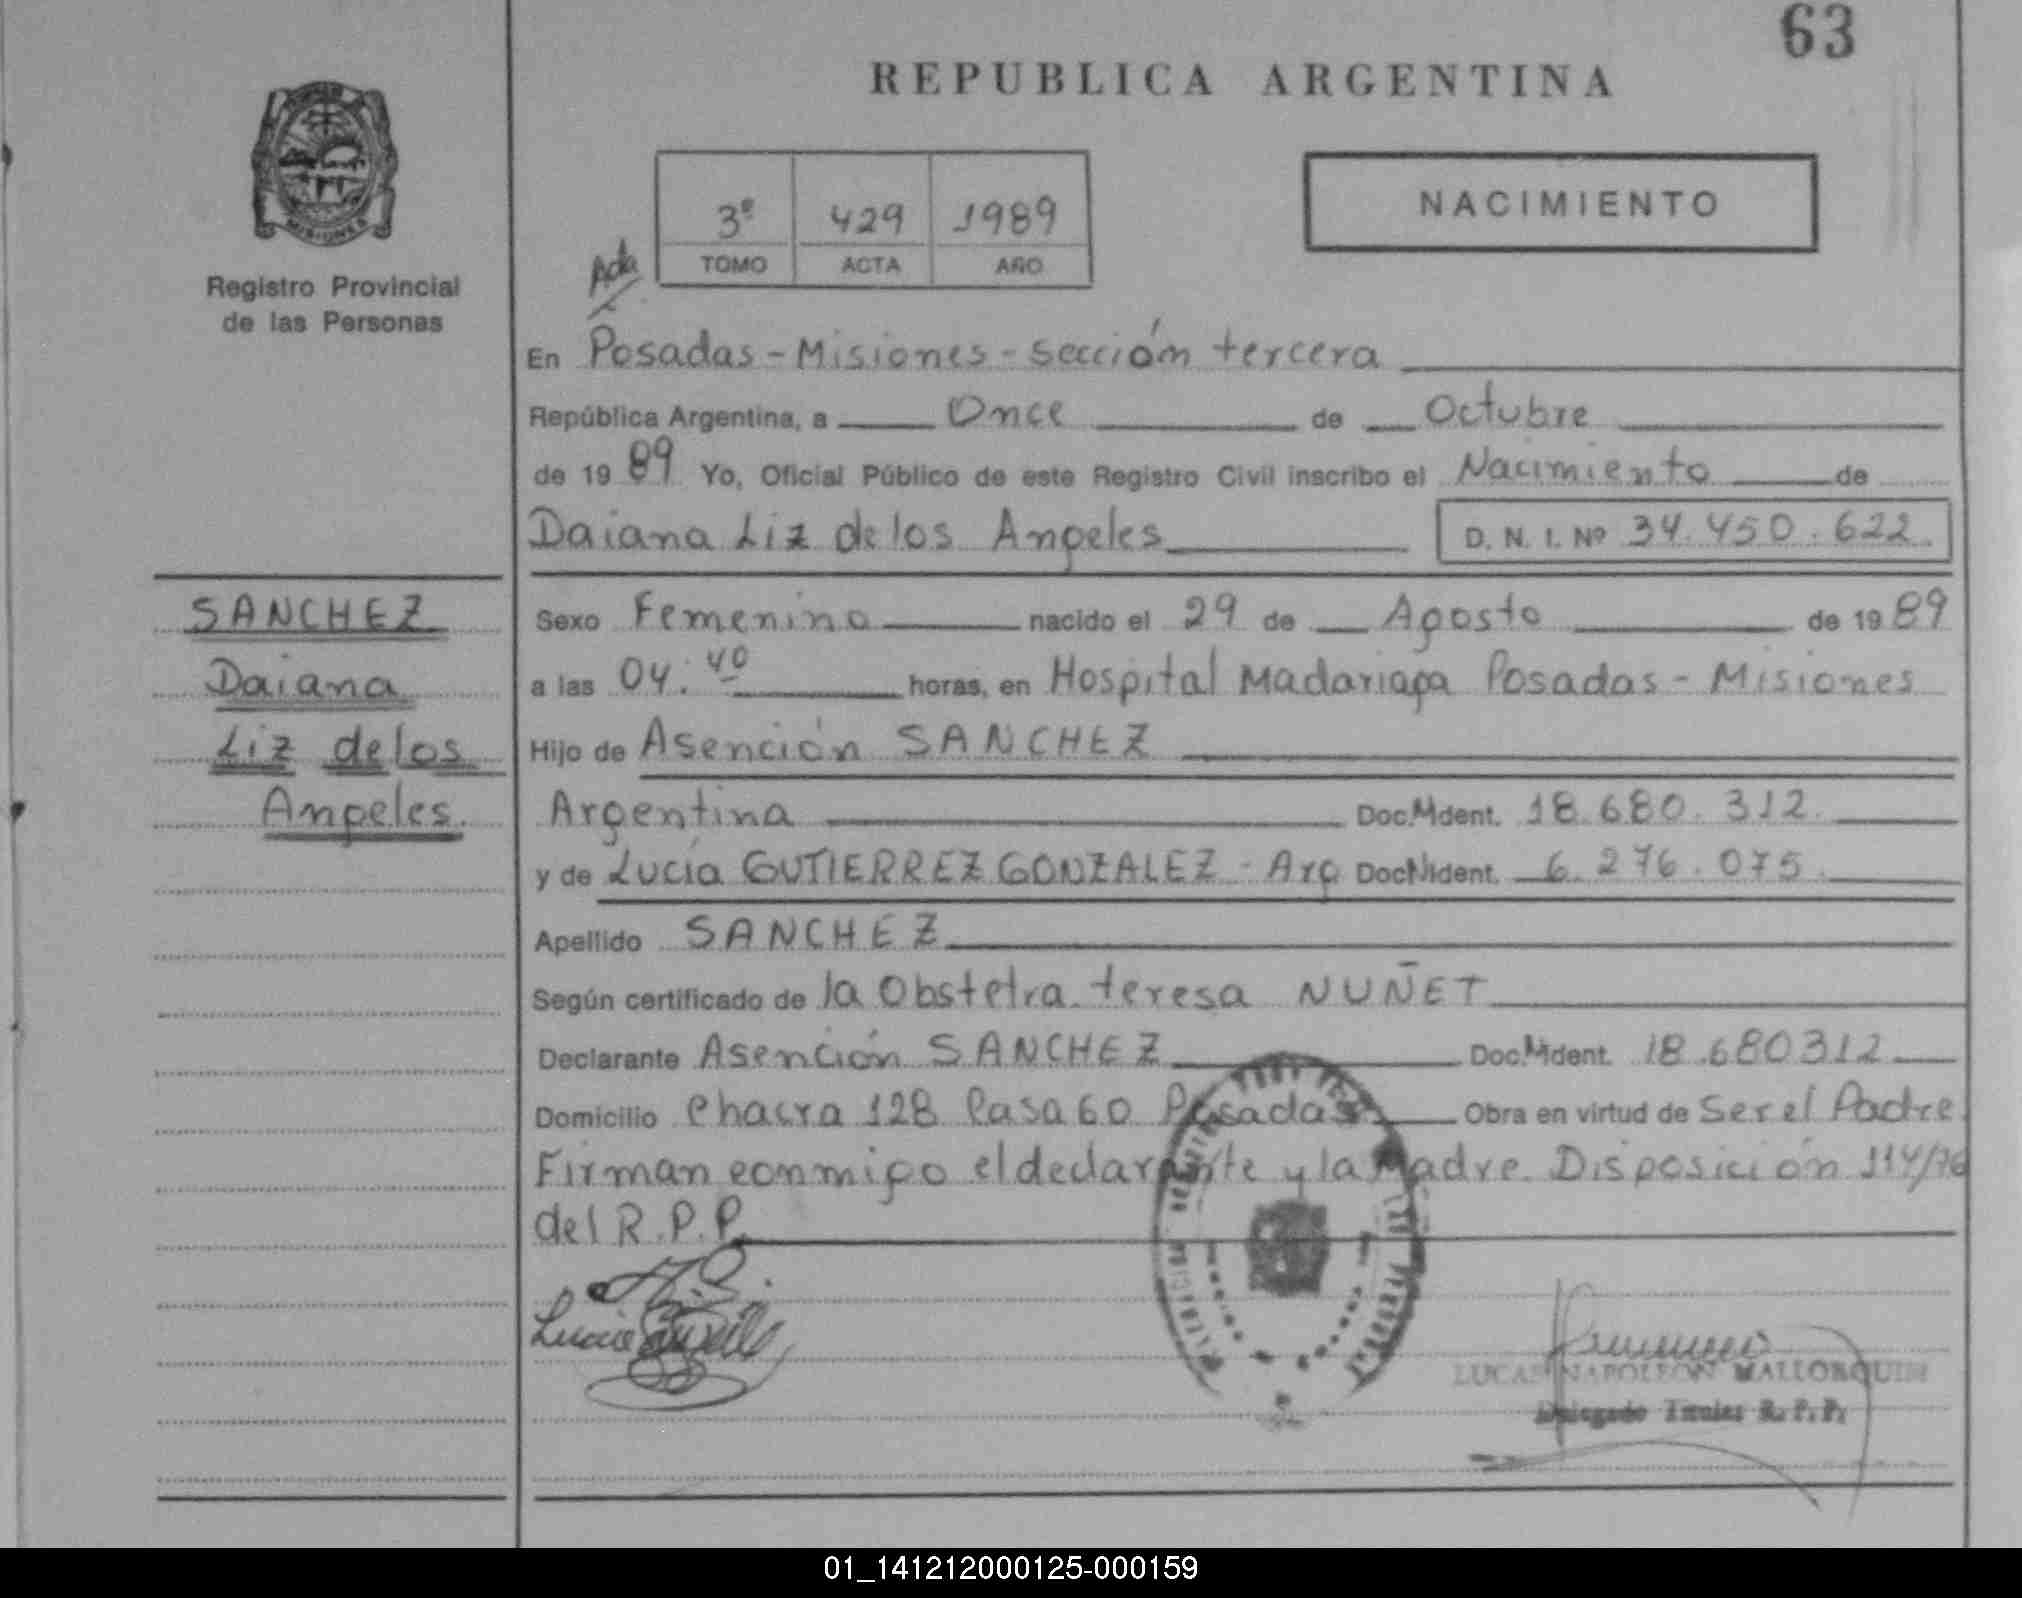 63
REPUBLICA ARGENTINA
NACIMIENTO
3º 429 1989
TOMO ACTA AÑO
MISIONES
Registro Provincial
de las Personas
En Posadas - Misiones - sección tercera
República Argentina, a Once de Octubre
de 19 89 Yo, Oficial Público de este Registro Civil inscribo el Nacimiento de
Daiana Liz de los Angeles D. N. I. Nº 34.450.622
SANCHEZ
Daiana
Liz de los
Angeles.
Sexo Femenino nacido el 29 de Agosto de 19 89
a las 04:40 horas, en Hospital Madariaga Posadas - Misiones
Hijo de Asención SANCHEZ
Argentina Doc. Ident. 18.680.312
y de Lucía GUTIERREZ GONZALEZ - Arg Doc Ident. 6.276.075
Apellido SANCHEZ
Según certificado de la Obstetra teresa NUÑET
Declarante Asención SANCHEZ Doc. Ident. 18.680312
Domicilio Chacra 128 Casa 60 Posadas Obra en virtud de Ser el Padre
Firman conmigo el declarante y la Madre. Disposición 114/76
del R.P.P.
Lucia
LUCAS NAPOLEON MALLORQUIN
Delegado Titular R. P. P.
01_141212000125-000159